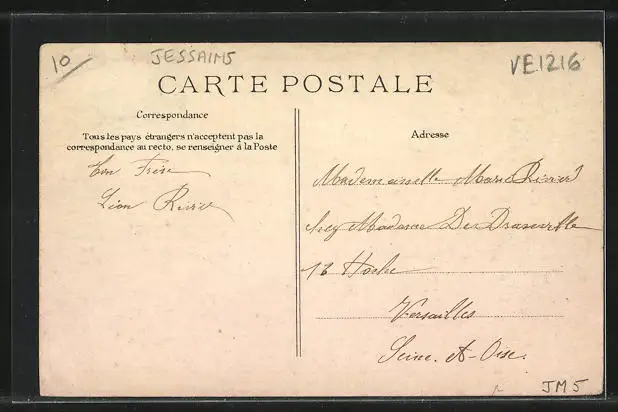 10
JESSAINS
VE1216
CARTE POSTALE
Correspondance
Tous les pays étrangers n'acceptent pas la
correspondance au recto, se renseigner à la Poste
Ton Frère
Léon Rivier
Adresse
Mademoiselle Marie Rivier
Chez Madame
13 Hoche
Versailles
Seine-et-Oise.
JM5